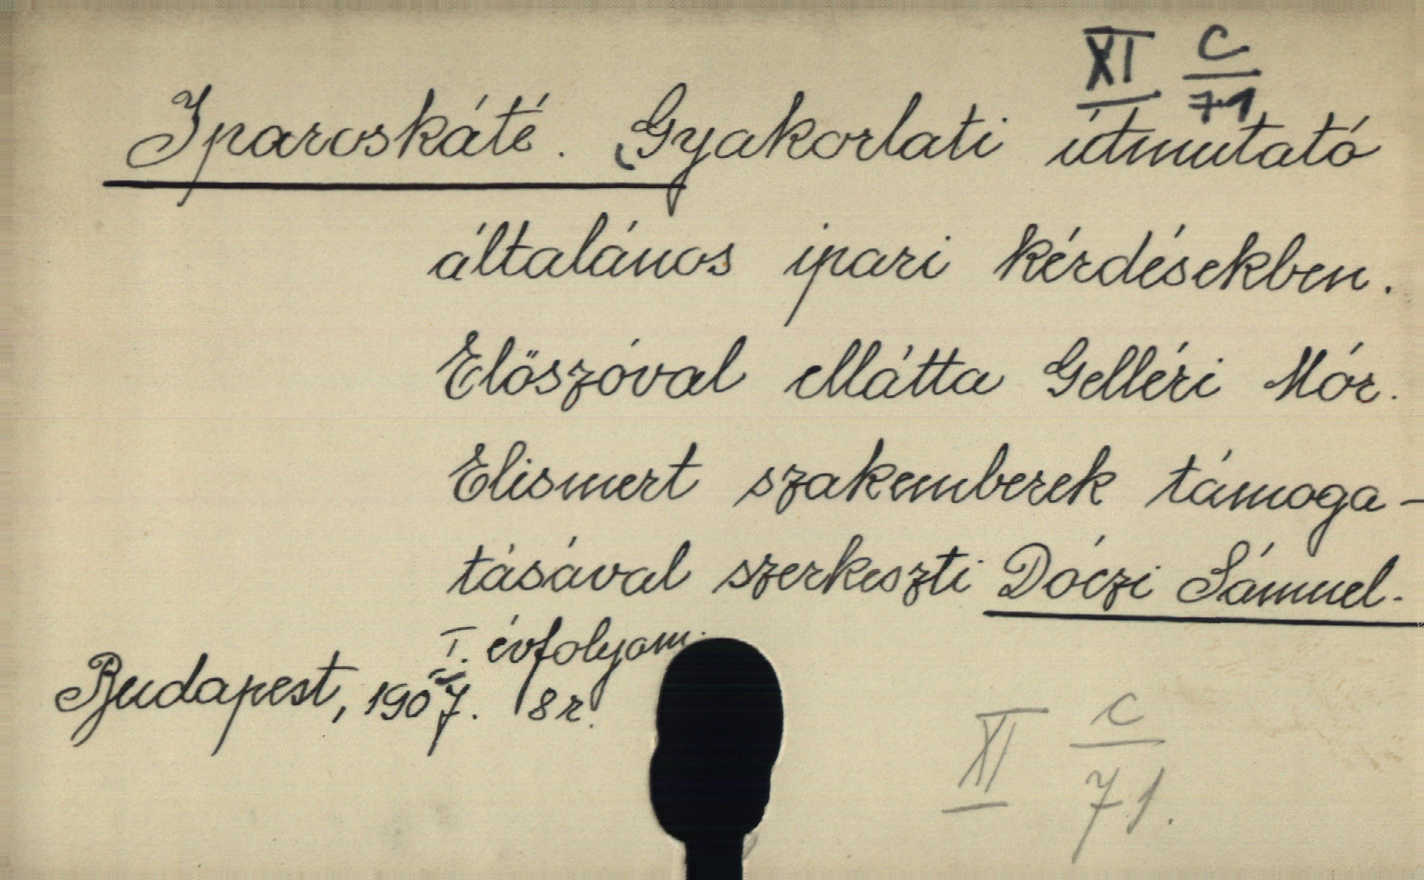 XI C/71
Iparoskáté. Gyakorlati útmutató
általános ipari kérdésekben.
Előszóval ellátta Gelléri Mór.
Elismert szakemberek támoga-
tásával szerkeszti Dóczi Sámuel.
I. évfolyam.
Budapest, 1907. 8r.
XI C/71.